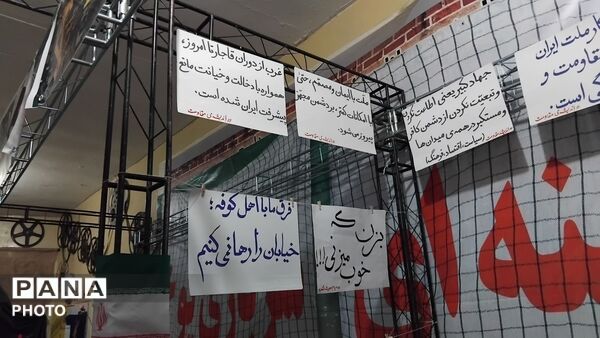 غرب از دوران قاجار تا امروز،
همواره با دخالت و خیانت مانع
پیشرفت ایران شده است.
ملت باایمان و مصمم، حتی
با امکانات کمتر، بر دشمن مجهز
پیروز می‌شود.
جهاد کبیر یعنی اطاعت نکردن
و تبعیت نکردن از دشمن کافر
و مستکبر در همه‌ی میدان‌ها
(سیاست، اقتصاد، فرهنگ)
ملت ایران
مقاومت و
است.
فرق ما با اهل کوفه؛
خیابان را رها نمی‌کنیم
بزن که
خوب میزنی!!!
نه‌ای
PANA
PHOTO